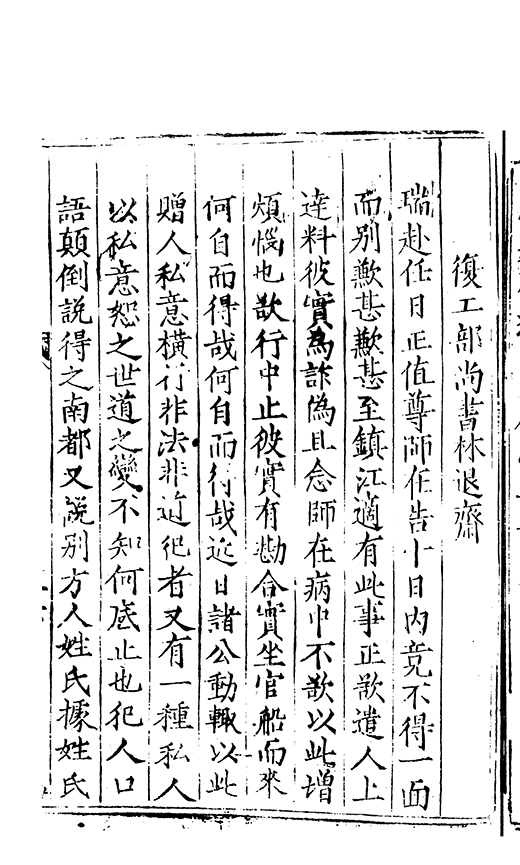 復工部尚書林退齋
瑞赴任日正值尊師在告十日內竟不得一面
而別歉甚歉甚至鎮江適有此事正欲遣人上
達料彼實為詐偽且念師在病中不欲以此增
煩惱也欲行中止彼實有勘合實坐官船而來
何自而得哉何自而行哉近日諸公動輒以此
贈人私意橫行非法非道犯者又有一種私人
以私意恕之世道之變不知何底止也犯人口
語顛倒說得之南都又說別方人姓氏據姓氏